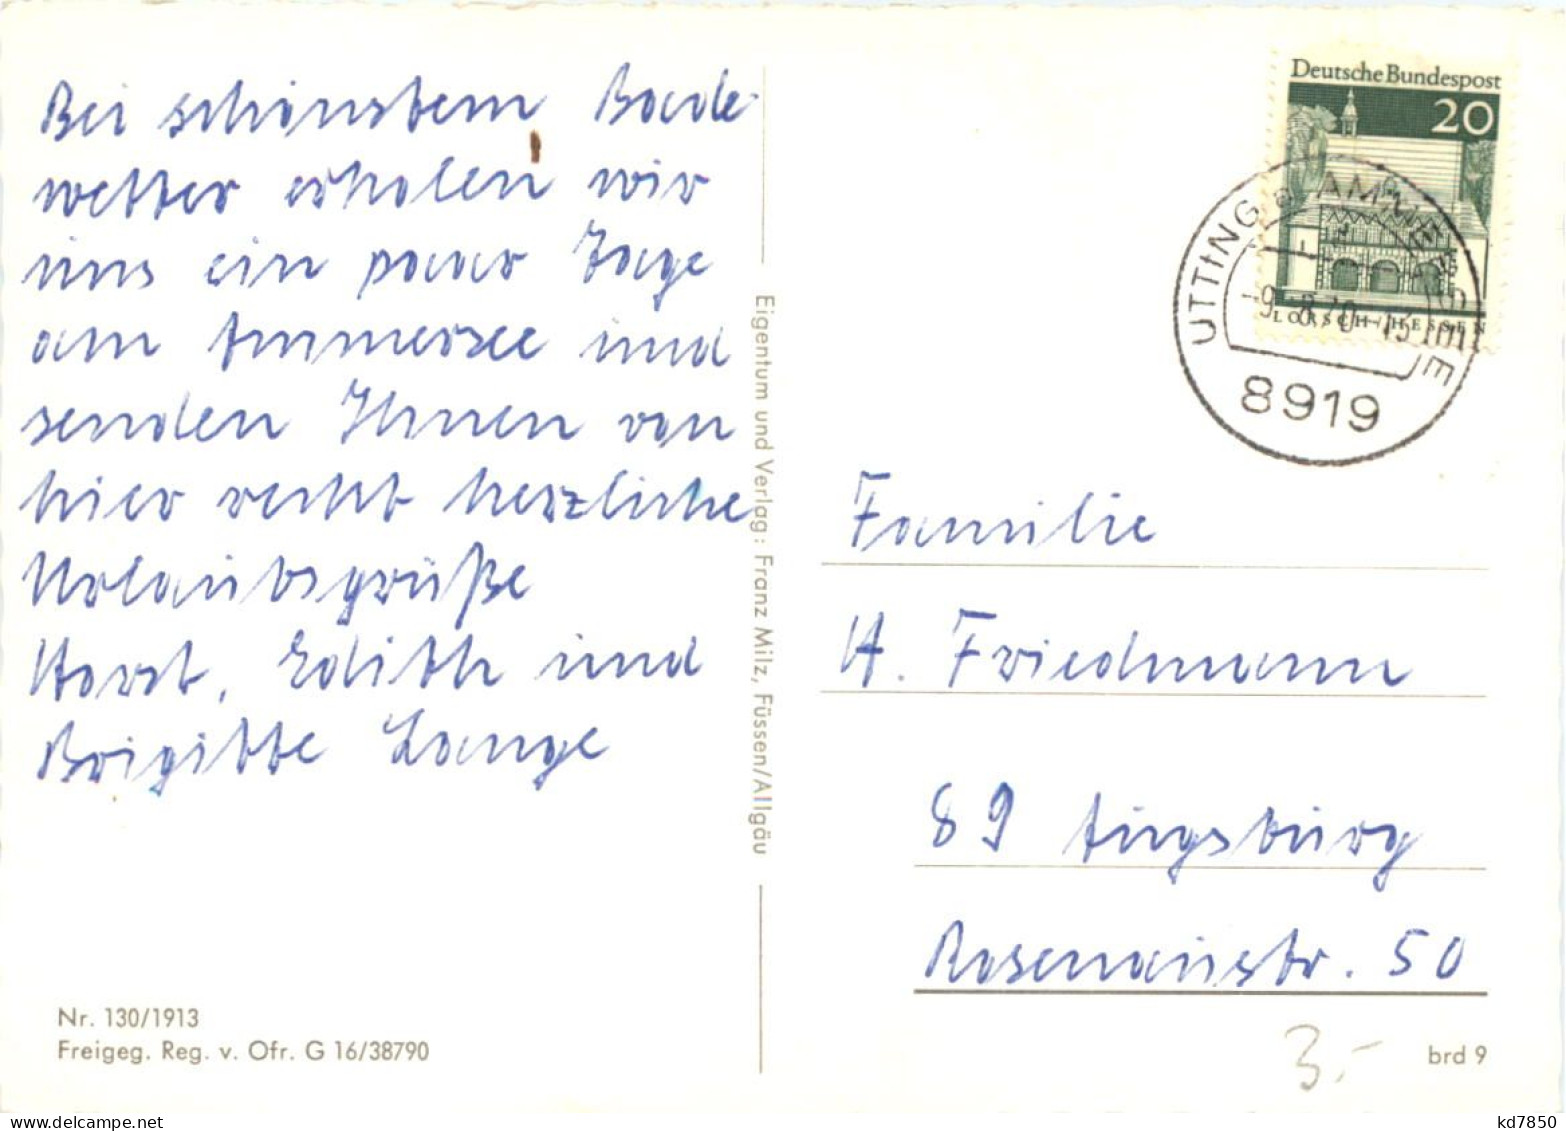 Bei schönstem Bade-
wetter erholen wir
uns ein paar Tage
am Ammersee und
senden Ihnen von
hier recht herzliche
Urlaubsgrüße
Horst, Edith und
Brigitte Lange
Nr. 130/1913
Freigeg. Reg. v. Ofr. G 16/38790
Eigentum und Verlag: Franz Milz, Füssen/Allgäu
Deutsche Bundespost
20
LORSCH/HESSEN
UTTING a AMMERSEE
8919
Familie
H. Friedmann
89 Augsburg
Rosenaustr. 50
3,-
brd 9
kd7850